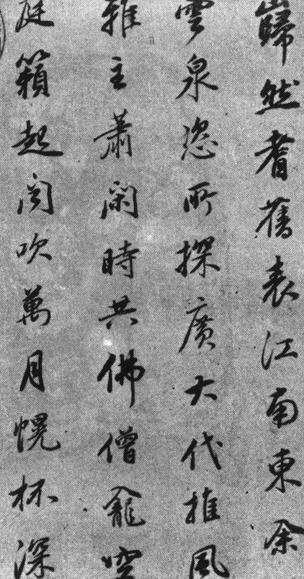 巋然耆舊表江南東余
雲泉恣所探廣大代推風
雅主蕭閑時共佛僧龕空
庭籟起閑吹萬月幌杯深